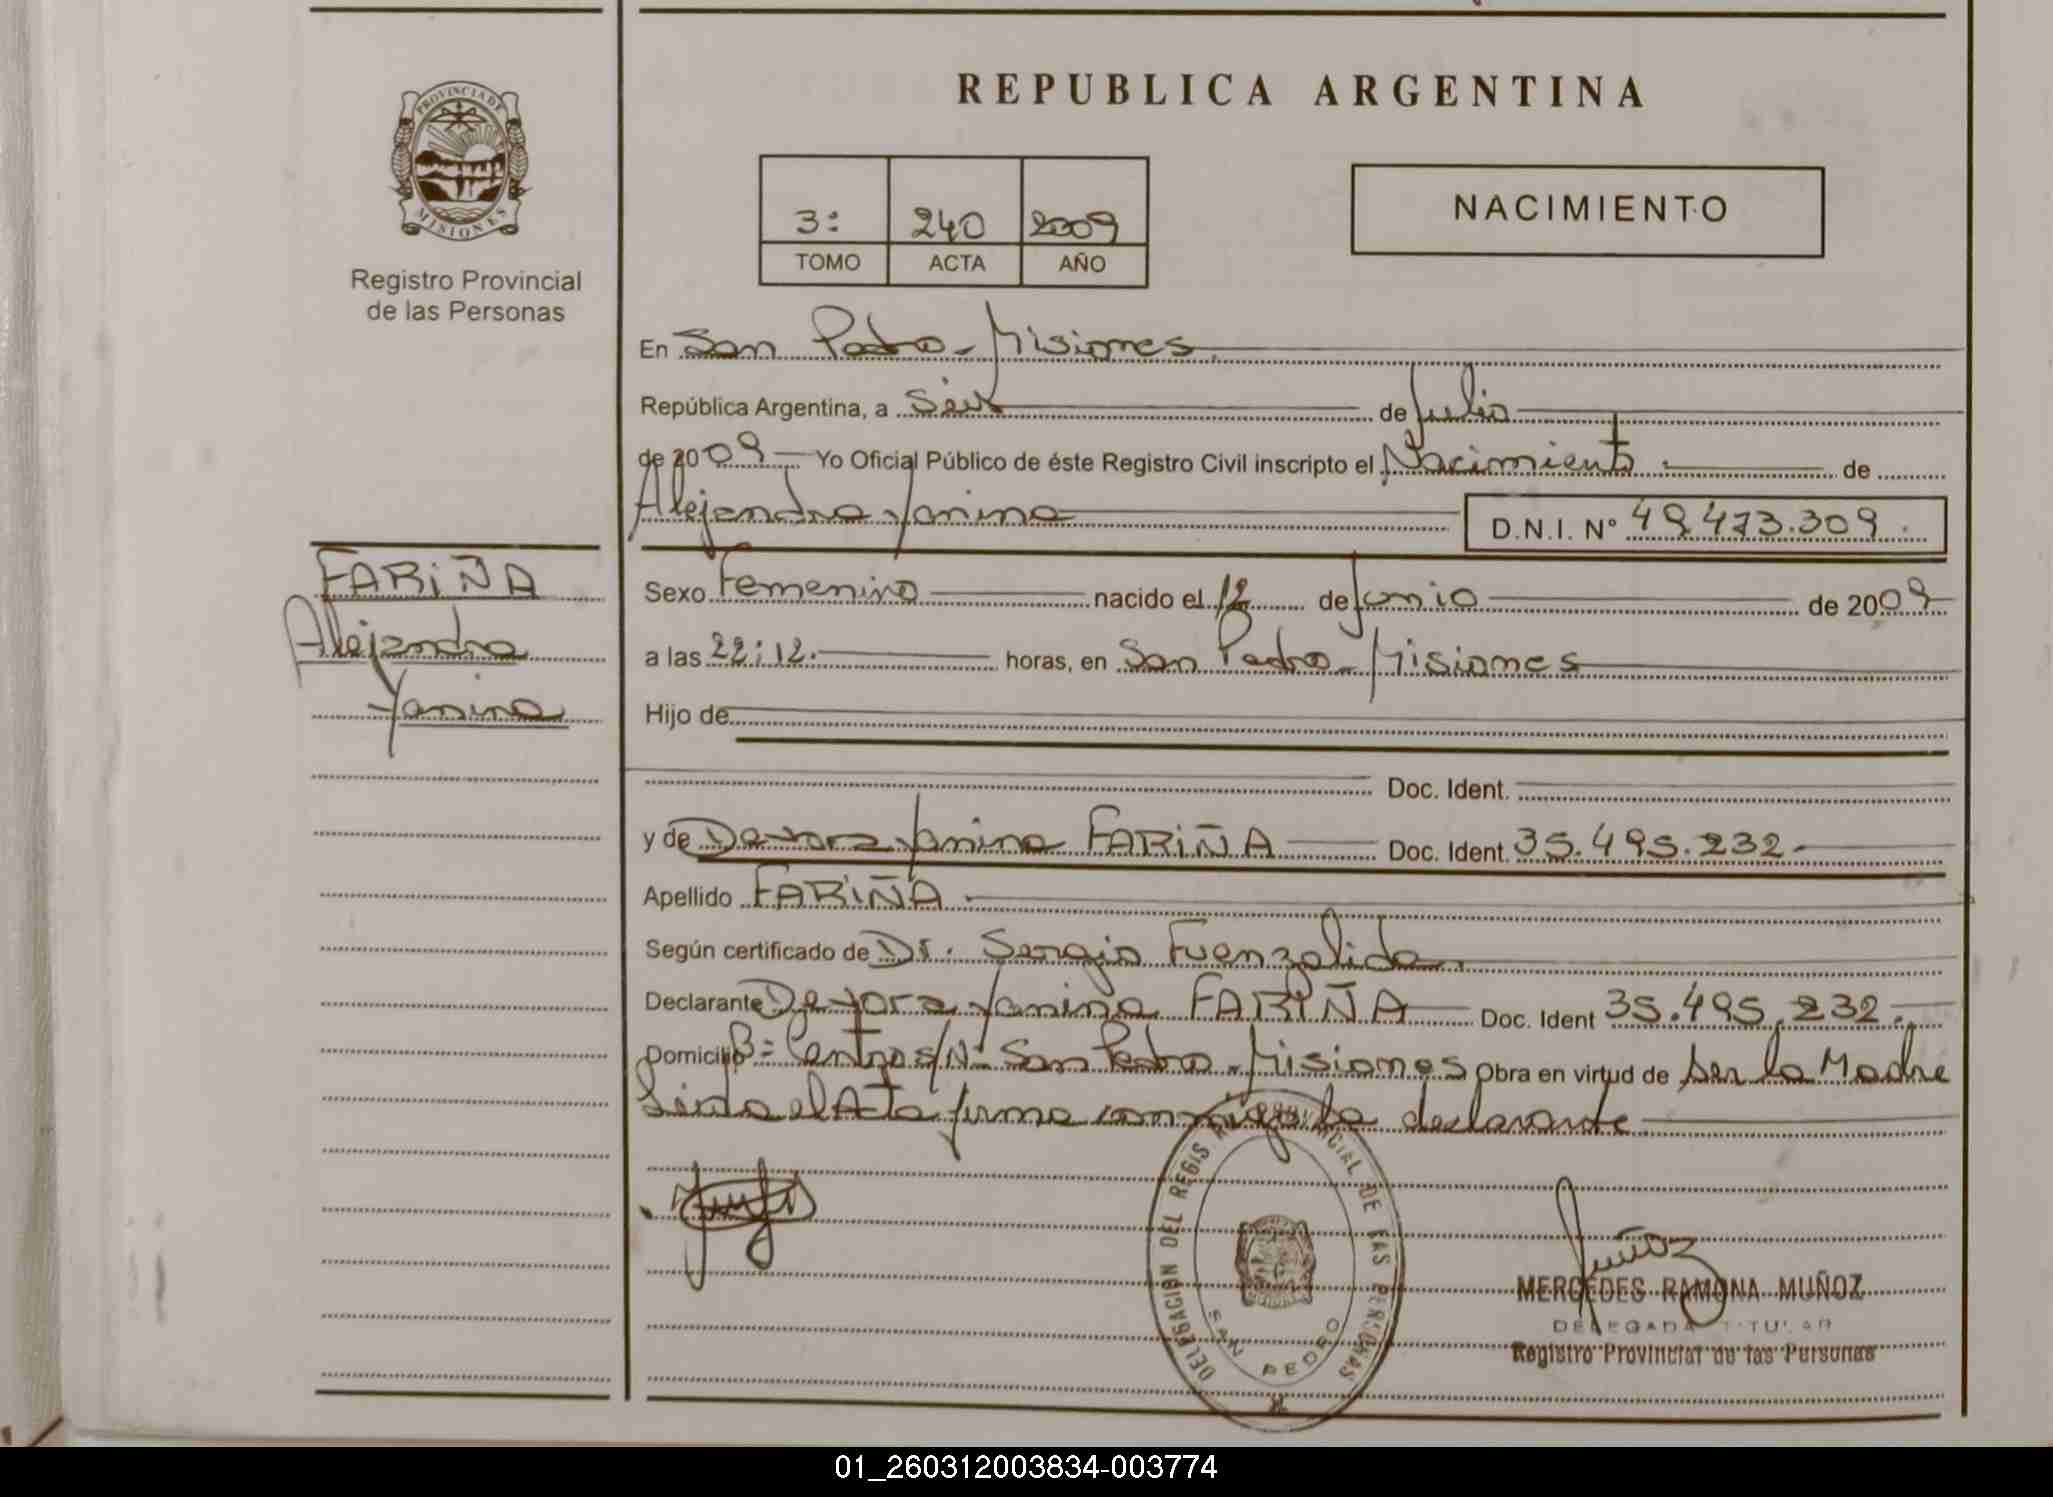 REPUBLICA ARGENTINA
PROVINCIA DE MISIONES
Registro Provincial
de las Personas
3: 240 2009
TOMO ACTA AÑO
NACIMIENTO
En San Pedro - Misiones
República Argentina, a Seis de Julio
de 2009 Yo Oficial Público de éste Registro Civil inscripto el Nacimiento de
Alejandra Yanina D.N.I. Nº 49.473.309.
FARIÑA
Alejandra
Yanina
Sexo Femenino nacido el 12 de Junio de 2009
a las 22:12. horas, en San Pedro - Misiones
Hijo de
Doc. Ident.
y de Deyora Yanina FARIÑA Doc. Ident. 35.495.232.-
Apellido FARIÑA
Según certificado de Dr. Sergio Fuenzalida.
Declarante Deyora Yanina FARIÑA Doc. Ident 35.495.232.-
Domicilio B= Centro S/Nº San Pedro - Misiones Obra en virtud de ser la Madre
Leída el Acta firma conmigo la declarante
DELEGACION DEL REGISTRO PROVINCIAL DE LAS PERSONAS
SAN PEDRO
Muñoz
MERCEDES RAMONA MUÑOZ
DELEGADA TITULAR
Registro Provincial de las Personas
01_260312003834-003774